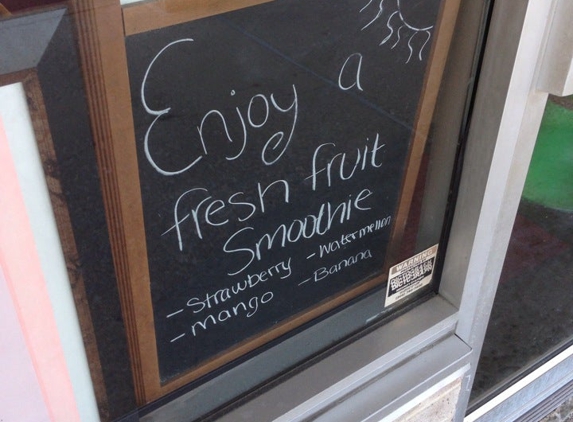 Enjoy a
fresh fruit
Smoothie
- Strawberry - Watermelon
- mango - Banana
WARNING